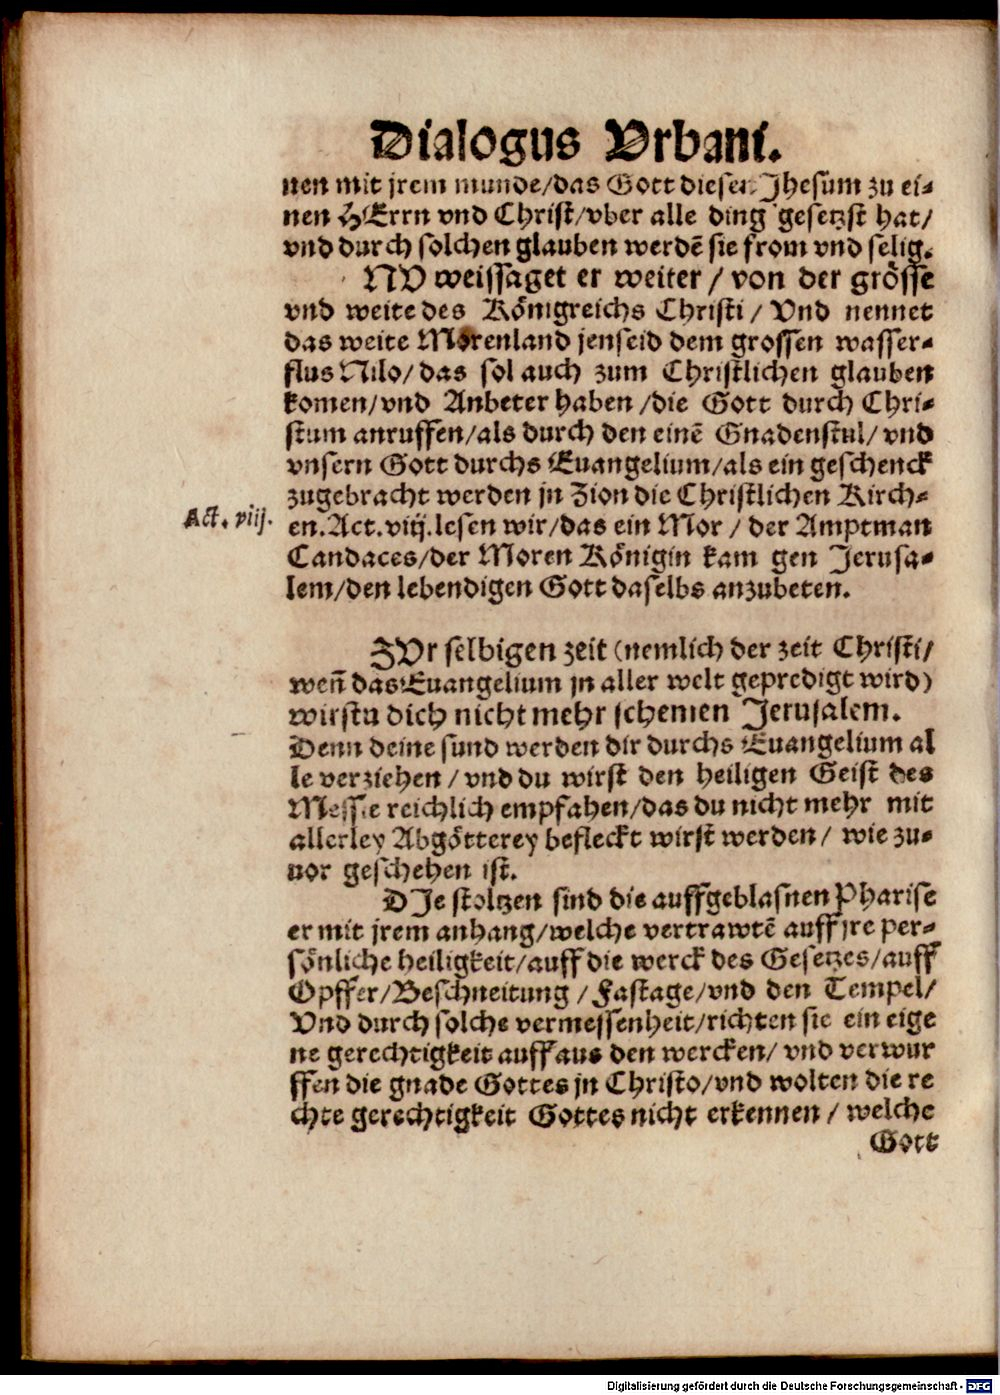 Dialogus Vrbani.
nen mit jrem munde/das Gott diesen Jhesum zu ei-
nen HErrn vnd Christ/vber alle ding gesetzt hat/
vnd durch solchen glauben werdē sie from vnd selig.
NV weissaget er weiter / von der grösse
vnd weite des Königreichs Christi / Vnd nennet
das weite Morenland jenseid dem grossen wasser-
flus Nilo/das sol auch zum Christlichen glauben
komen/vnd Anbeter haben /die Gott durch Chri-
stum anruffen/als durch den einē Gnadenstul/ vnd
vnsern Gott durchs Euangelium/als ein geschenck
zugebracht werden jn Zion die Christlichen Kirch-
Act. viij.
en.Act.viij.lesen wir/das ein Mor / der Amptman
Candaces/der Moren Königin kam gen Jerusa-
lem/den lebendigen Gott daselbs anzubeten.
ZVr selbigen zeit (nemlich der zeit Christi/
weñ das Euangelium jn aller welt gepredigt wird)
wirstu dich nicht mehr schemen Jerusalem.
Denn deine sund werden dir durchs Euangelium al
le verziehen / vnd du wirst den heiligen Geist des
Messie reichlich empfahen/das du nicht mehr mit
allerley Abgötterey befleckt wirst werden/ wie zu-
uor geschehen ist.
DJe stoltzen sind die auffgeblasnen Pharise
er mit jrem anhang/welche vertrawtē auff jre per-
sönliche heiligkeit/auff die werck des Gesetzes/auff
Opffer/Beschneitung / Fastage/vnd den Tempel/
Vnd durch solche vermessenheit/richten sie ein eige
ne gerechtigkeit auff aus den wercken/ vnd verwur
ffen die gnade Gottes jn Christo/vnd wolten die re
chte gerechtigkeit Gottes nicht erkennen / welche
Gott
Digitalisierung gefördert durch die Deutsche Forschungsgemeinschaft - DFG